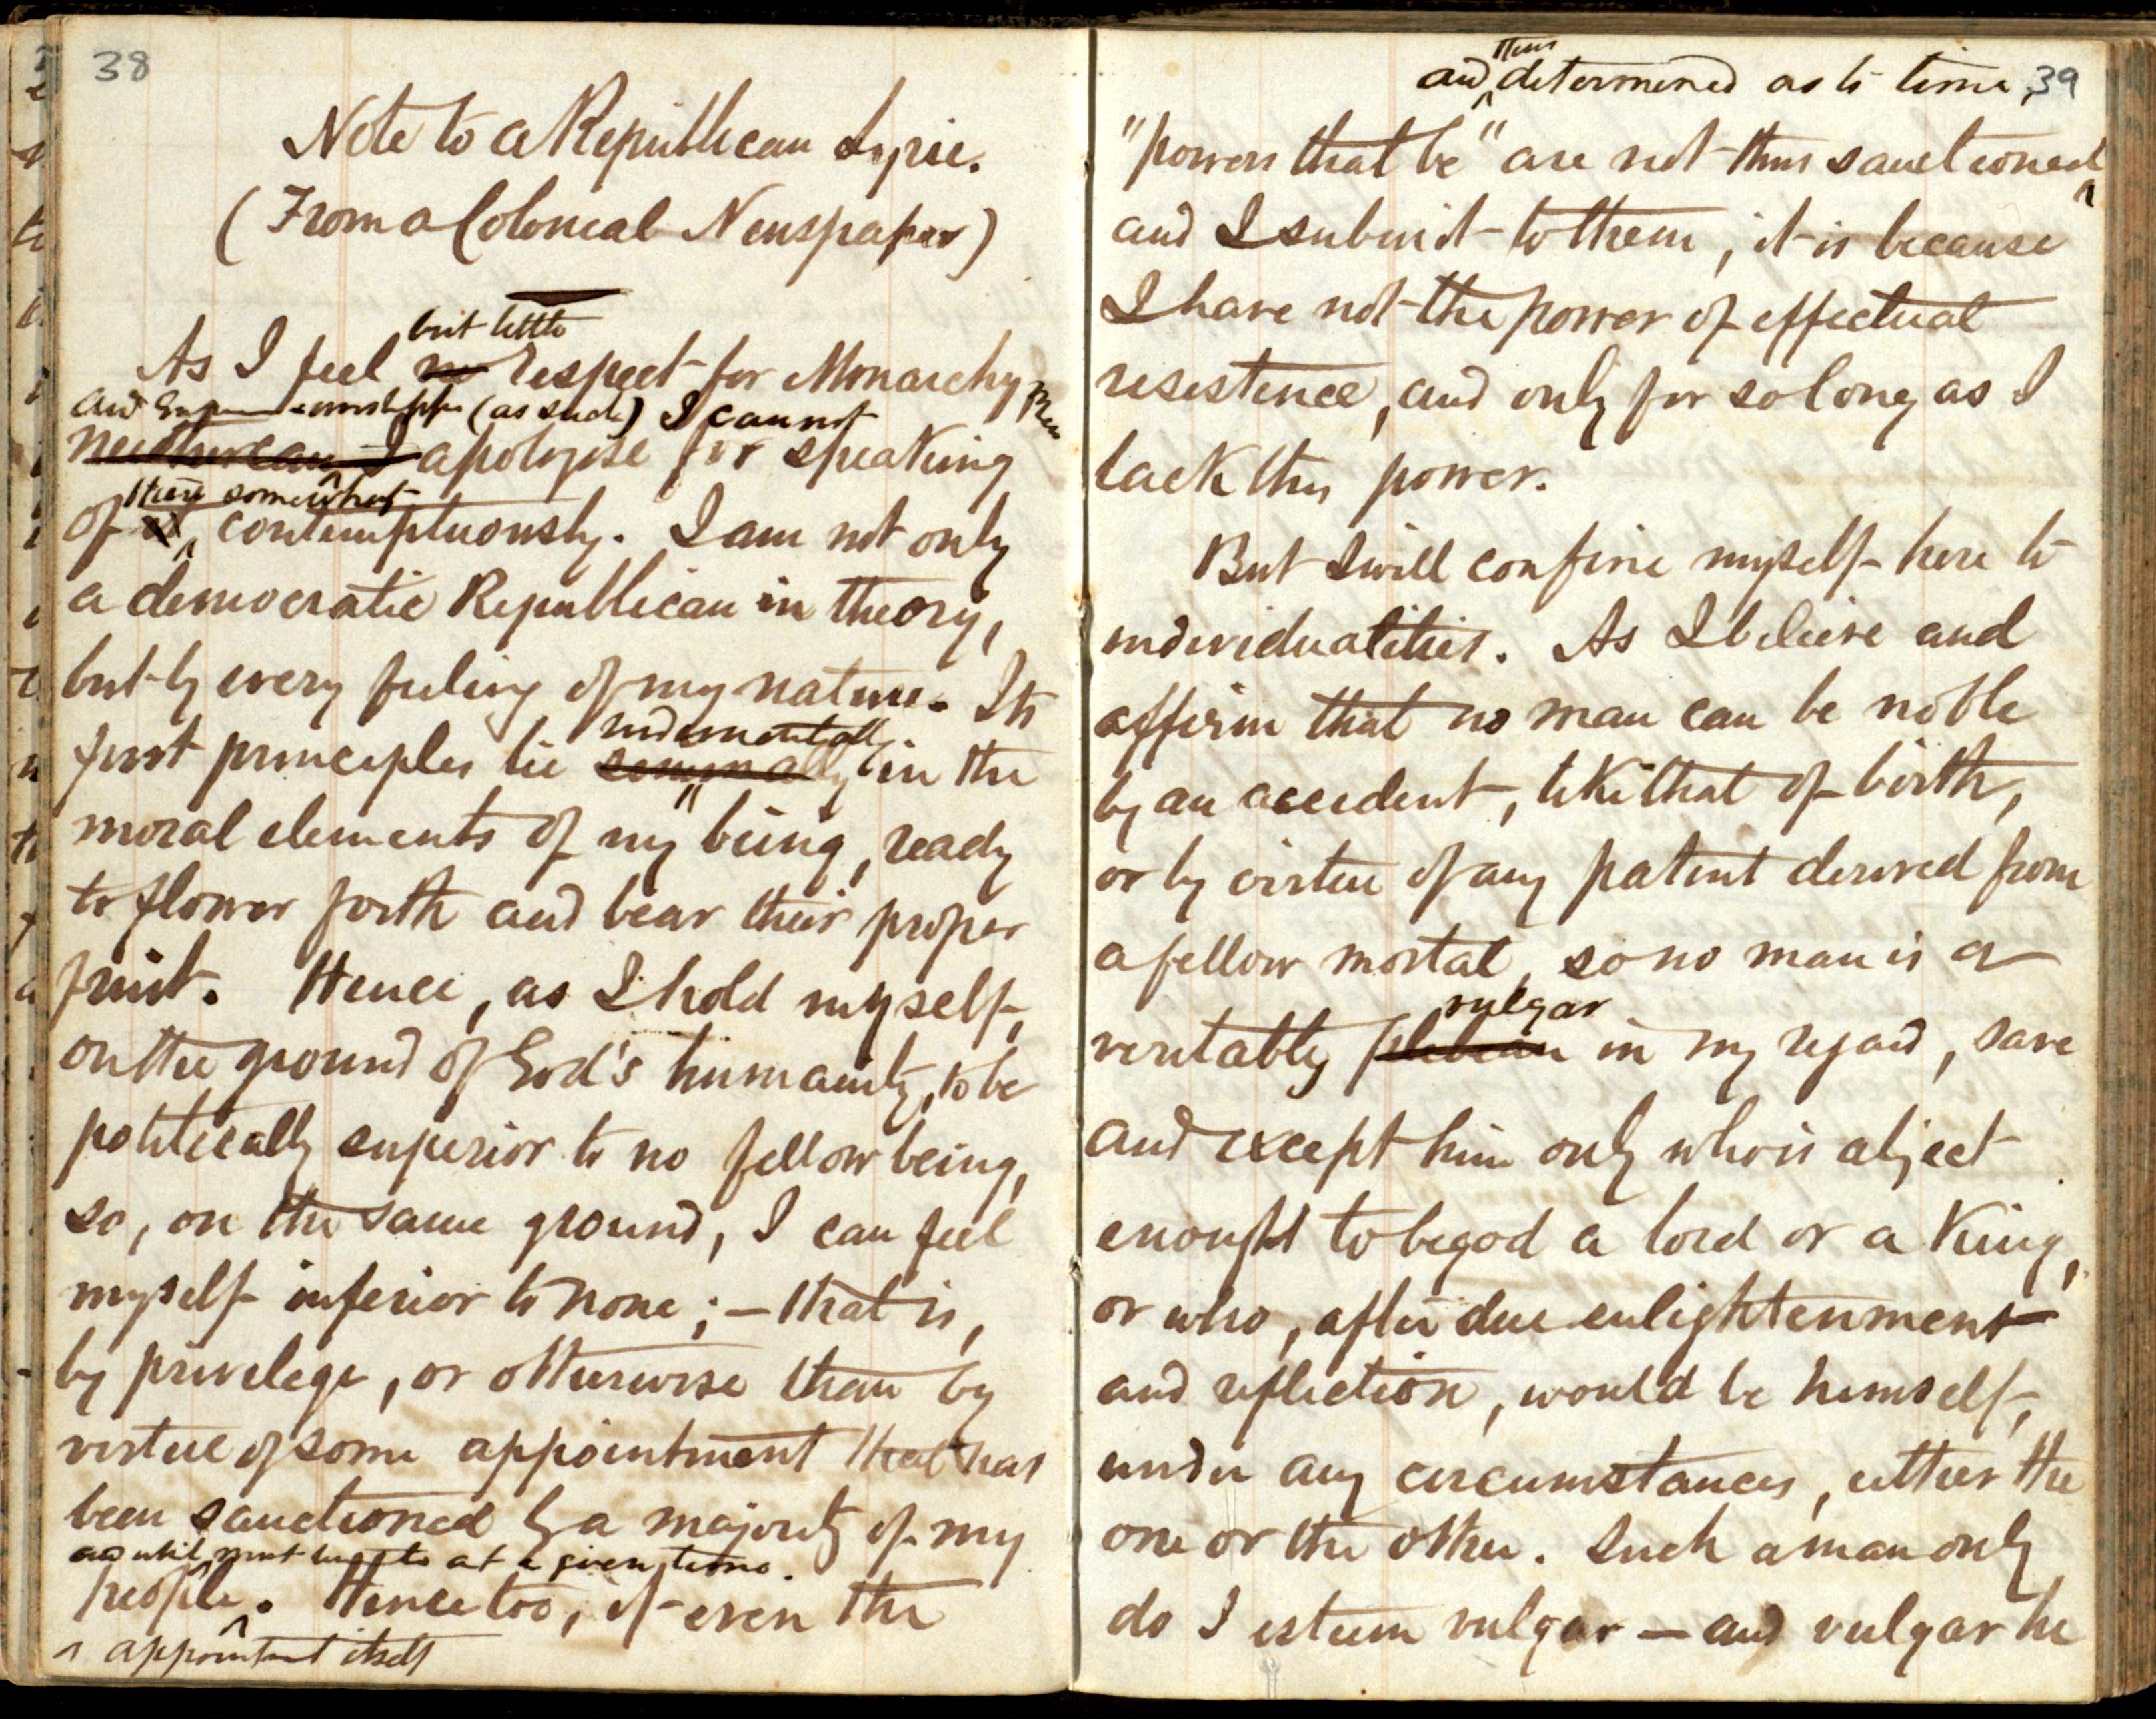 38
Note to a Republican Lyric.
(From a Colonial Newspaper)
but little
As I feel no respect for Monarchy
and worship (as such) I cannot
neither can I apologise for speaking
them somewhat
of it, contemptuously. I am not only
a democratic Republican in theory,
but by every feeling of my nature. Its
rudimentally
first principles lie seminally in the
moral elements of my being, ready
to flower forth and bear their proper
fruit. Hence, as I hold myself,
on the ground of God's humanity, to be
politically superior to no fellow being,
so, on the same ground, I can feel
myself inferior to none; — that is,
by privilege, or otherwise than by
virtue of some appointment that has
been sanctioned by a majority of my
at a given time.
people. Hence too, if even the
appointment itself
39
thus
and determined as to time,
"powers that be" are not thus sanctioned
and I submit to them, it is because
I have not the power of effectual
resistence, and only for so long as I
lack this power.
But I will confine myself here to
individualities. As I believe and
affirm that no man can be noble
by an accident, like that of birth,
or by virtue of any patent derived from
a fellow mortal, so no man is a
vulgar
veritably plebean in my regard, save
and except him only who is abject
enough to begod a lord or a King,
or who, after due enlightenment
and reflection, would be himself,
under any circumstances, either the
one or the other. Such a man only
do I esteem vulgar — and vulgar he